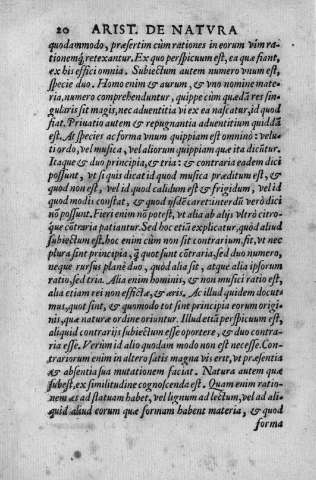 20 ARIST. DE NATVRA
quodammodo, præsertim cùm rationes in eorum vim ra-
tionemq́; retexantur. Ex quo perspicuum est, ea quæ fiant,
ex his effici omnia. Subiectum autem numero vnum est,
specie duo. Homo enim & aurum, & vno nomine mate-
ria, numero comprehenduntur, quippe cùm quædã res sin-
gularis sit magis, nec aduentitia vi ex ea nascatur, id quod
fiat. Priuatio autem & repugnantia aduentitium quiddã
est. At species ac forma vnum quippiam est omnino: velu-
ti ordo, vel musica, vel aliorum quippiam quæ ita dicũtur.
Itaque & duo principia, & tria: & contraria eadem dici
possunt, vt si quis dicat id quod musica præditum est, &
quod non est, vel id quod calidum est & frigidum, vel id
quod modis constat, & quod ijsdẽ caret: interdũ verò dici
nõ possunt. Fieri enim nõ potest, vt alia ab alijs vltrò citro-
que cõtraria patiantur. Sed hoc etiã explicatur, quòd aliud
subiectum est. hoc enim cùm non sit contrarium, fit, vt nec
plura sint principia, q̃ quot sunt cõtraria, sed duo numero,
neque rursus planè duo, quòd alia sit, atque alia ipsorum
ratio, sed tria. Alia enim hominis, & non musici ratio est,
alia etiam rei non effictæ, & æris. Ac illud quidem docuta
mus, quot sint, & quomodo tot sint principia eorum origi-
nis, quæ naturæ ordine oriuntur. Illud etiã perspicuum est,
aliquid contrarijs subiectum esse oportere, & duo contra-
ria esse. Verùm id alio quodam modo non est necesse. Con-
trariorum enim in altero satis magna vis erit, vt præsentia
& absentia sua mutationem faciat. Natura autem quæ
subest, ex similitudine cognoscenda est. Quam enim ratio-
nem æs ad statuam habet, vel lignum ad lectum, vel ad ali-
quid aliud eorum quæ formam habent materia, & quod
forma